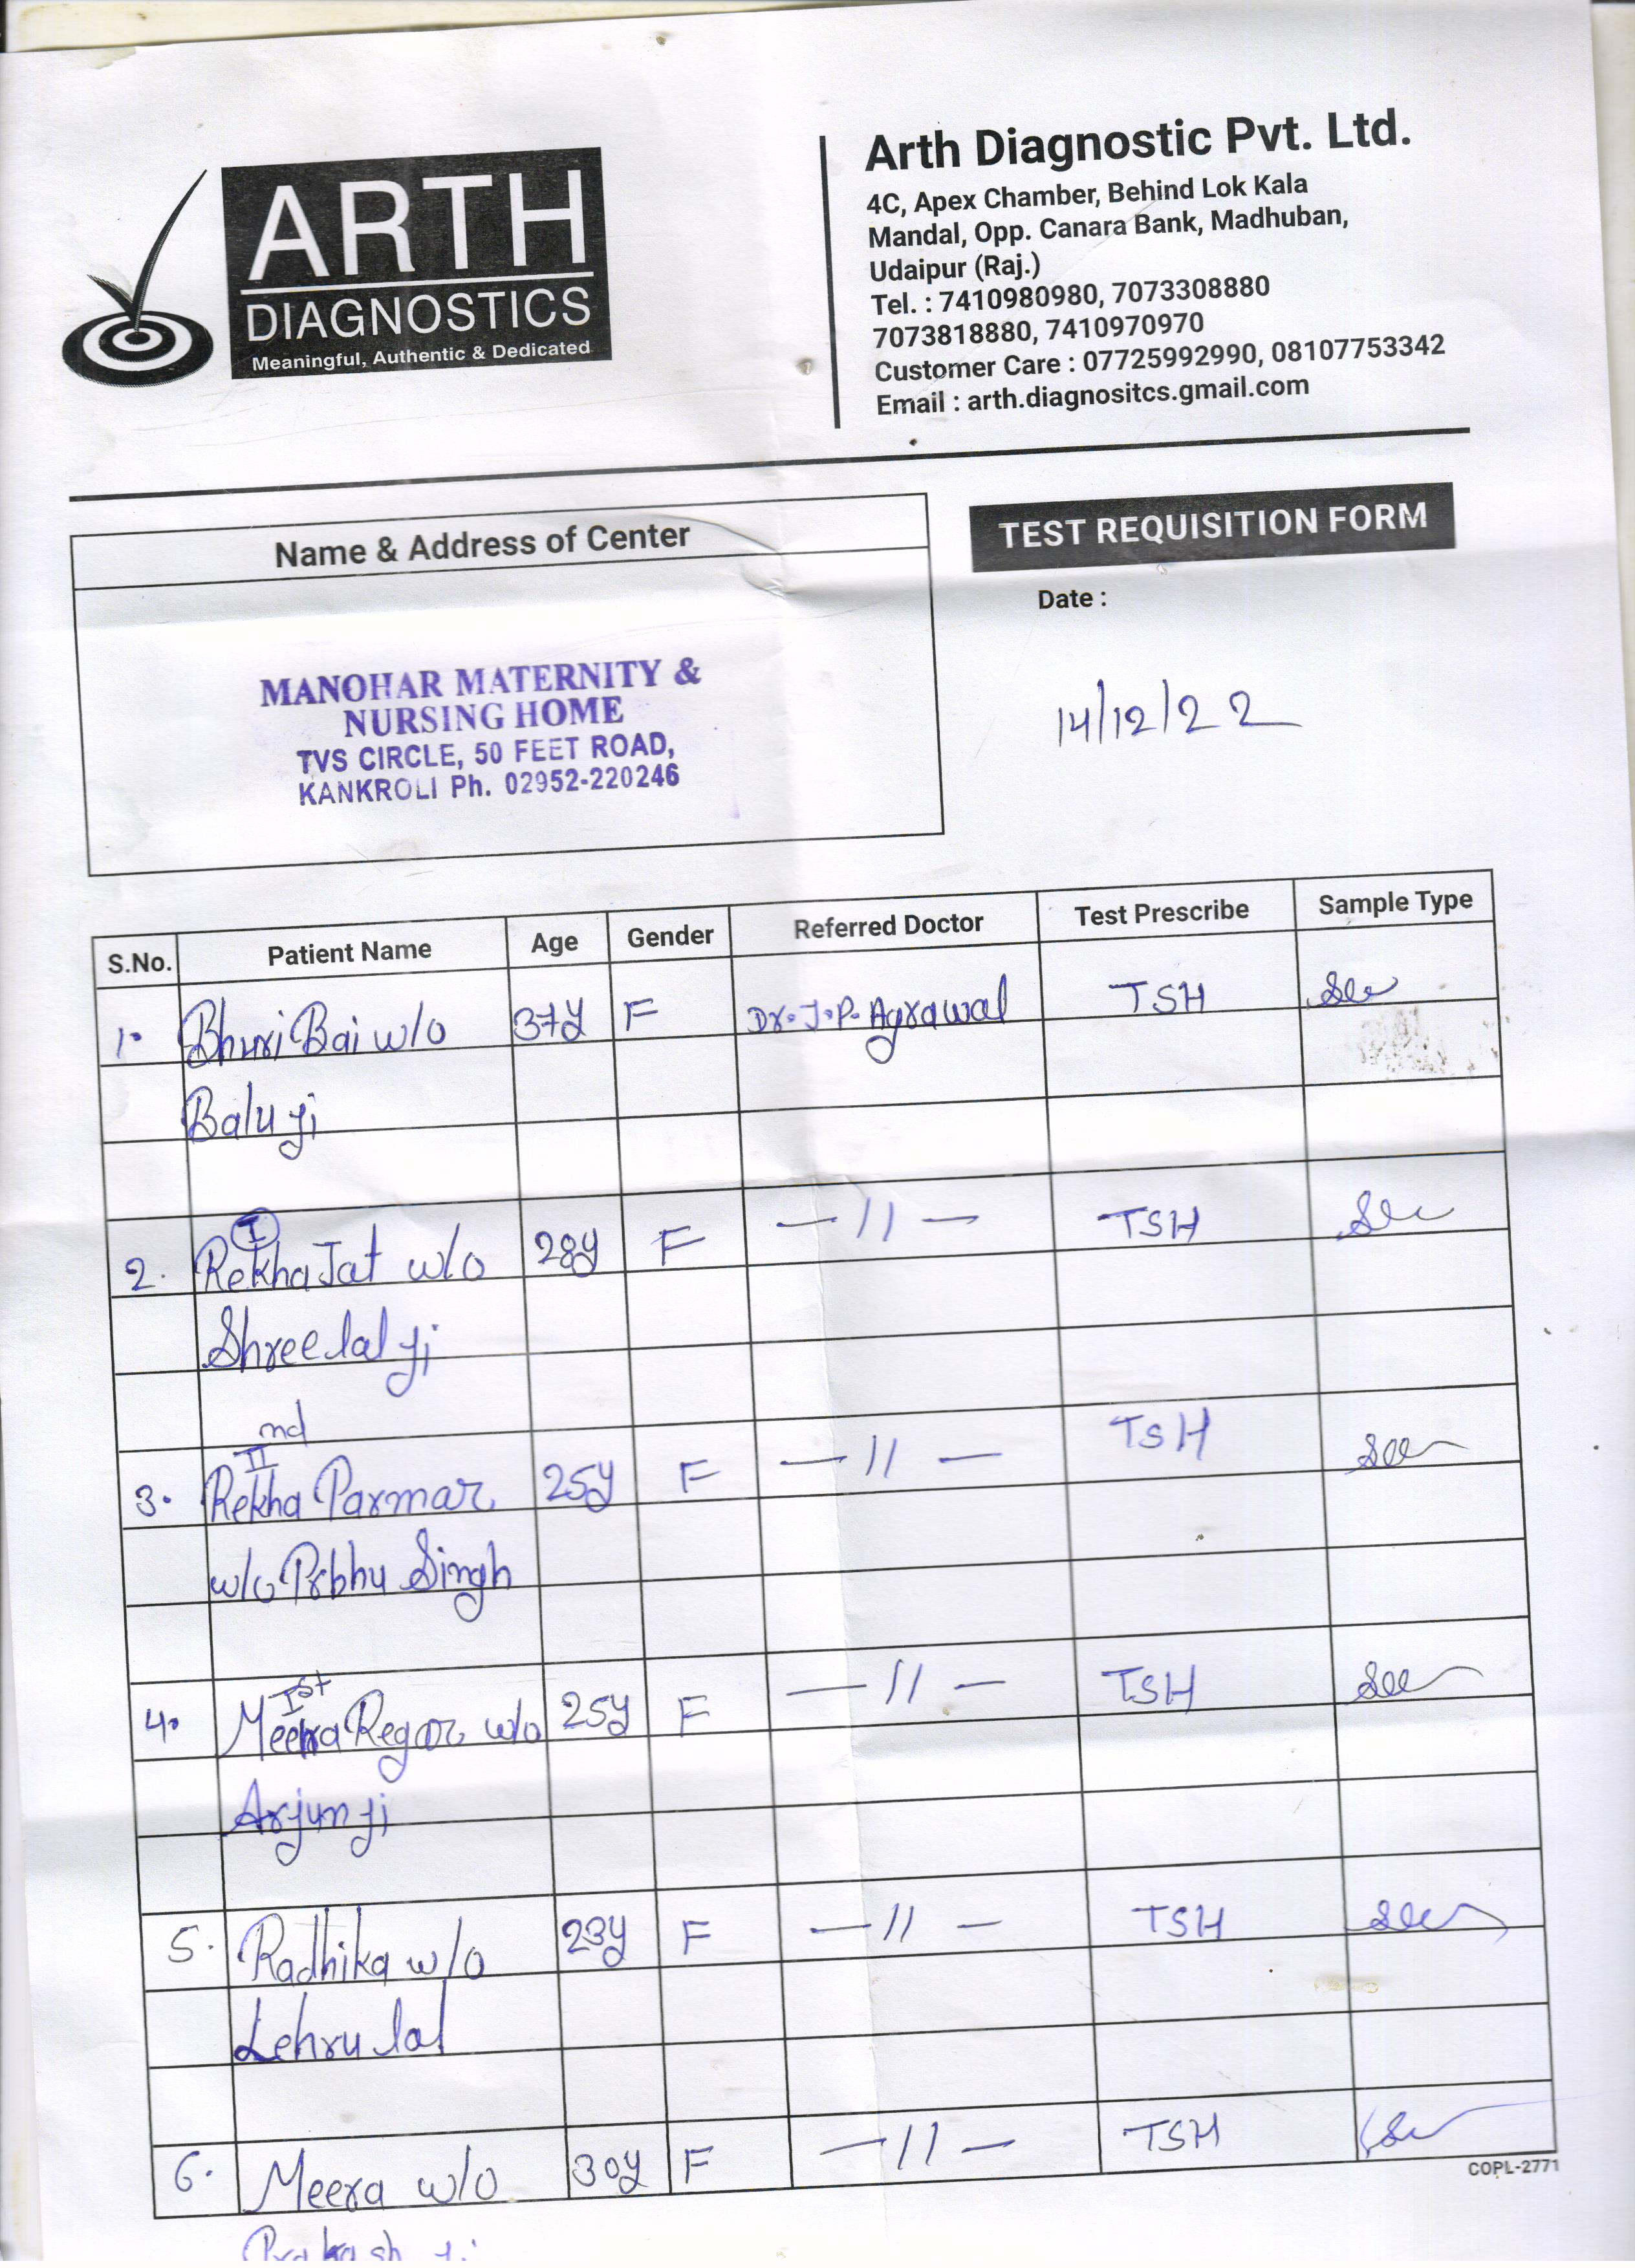 ARTH
DIAGNOSTICS
Meaningful, Authentic & Dedicated
Arth Diagnostic Pvt. Ltd.
4C, Apex Chamber, Behind Lok Kala
Mandal, Opp. Canara Bank, Madhuban,
Udaipur (Raj.)
Tel. : 7410980980, 7073308880
7073818880, 7410970970
Customer Care : 07725992990, 08107753342
Email : arth.diagnositcs.gmail.com
Name & Address of Center
TEST REQUISITION FORM
Date :
14/12/22
MANOHAR MATERNITY &
NURSING HOME
TVS CIRCLE, 50 FEET ROAD,
KANKROLI Ph. 02952-220246
S.No. Patient Name Age Gender Referred Doctor Test Prescribe Sample Type
1. Bhuri Bai w/o 37y F Dr. J.P. Agrawal TSH
Balu ji
I
2. Rekha Jat w/o 28y F —//— TSH
Shreelal ji
nd
II
3. Rekha Parmar 25y F —//— TSH
w/o Prbhu Singh
Ist
4. Meera Regar w/o 25y F —//— TSH
Arjun ji
5. Radhika w/o 23y F —//— TSH
Lehru lal
6. Meera w/o 30y F —//— TSH
COPL-2771
Prakash ji